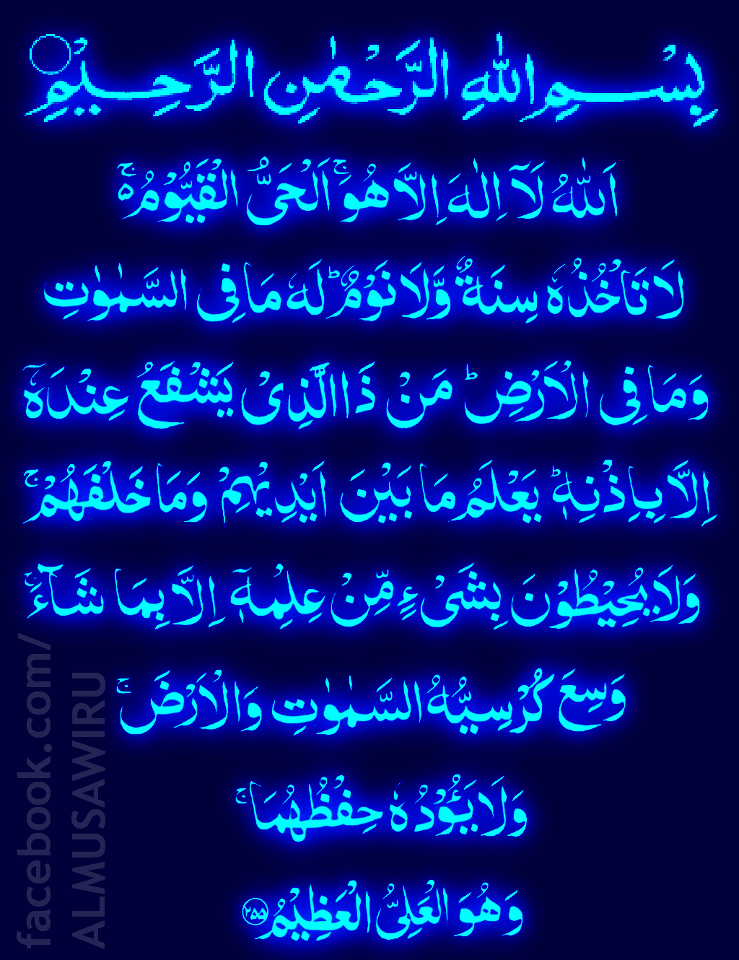 بِسْمِ اللهِ الرَّحْمٰنِ الرَّحِيْمِ
اَللهُ لَآ اِلٰهَ اِلَّا هُوَۚ اَلْحَىُّ الْقَيُّوْمُ ۚ
لَا تَاْخُذُهٗ سِنَةٌ وَّلَا نَوْمٌ ؕ لَهٗ مَا فِى السَّمٰوٰتِ
وَمَا فِى الْاَرْضِ ؕ مَنْ ذَا الَّذِىْ يَشْفَعُ عِنْدَهٗۤ
اِلَّا بِاِذْنِهٖ ؕ يَعْلَمُ مَا بَيْنَ اَيْدِيْهِمْ وَمَا خَلْفَهُمْ ۚ
وَلَا يُحِيْطُوْنَ بِشَىْءٍ مِّنْ عِلْمِهٖۤ اِلَّا بِمَا شَآءَ ۚ
وَسِعَ كُرْسِيُّهُ السَّمٰوٰتِ وَالْاَرْضَ ۚ
وَلَا يَـُٔوْدُهٗ حِفْظُهُمَا ۚ
وَهُوَ الْعَلِىُّ الْعَظِيْمُ ۝٢٥٥
facebook.com/
ALMUSAWIRU